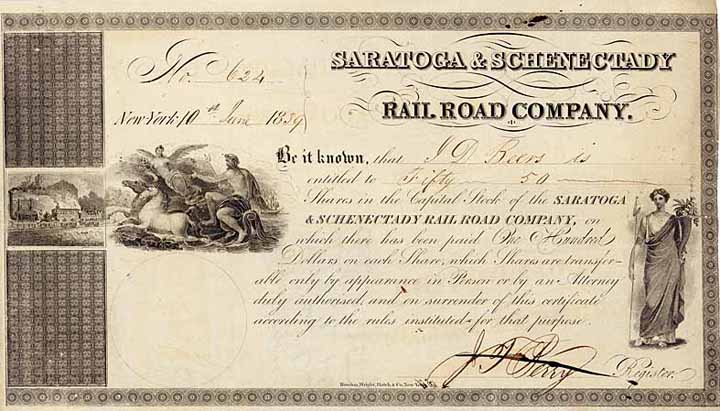 SARATOGA & SCHENECTADY
RAIL ROAD COMPANY.
No. 624
New York 10th June 1839
Be it known, that J D Beers is
entitled to Fifty 50
Shares in the Capital Stock of the SARATOGA
& SCHENECTADY RAIL ROAD COMPANY, on
which there has been paid One Hundred
Dollars on each Share, which Shares are transfer-
able only by appearance in Person or by an Attorney
duly authorised, and on surrender of this certificate
according to the rules instituted for that purpose.
J T Perry Register.
Rawdon, Wright, Hatch & Co. New York